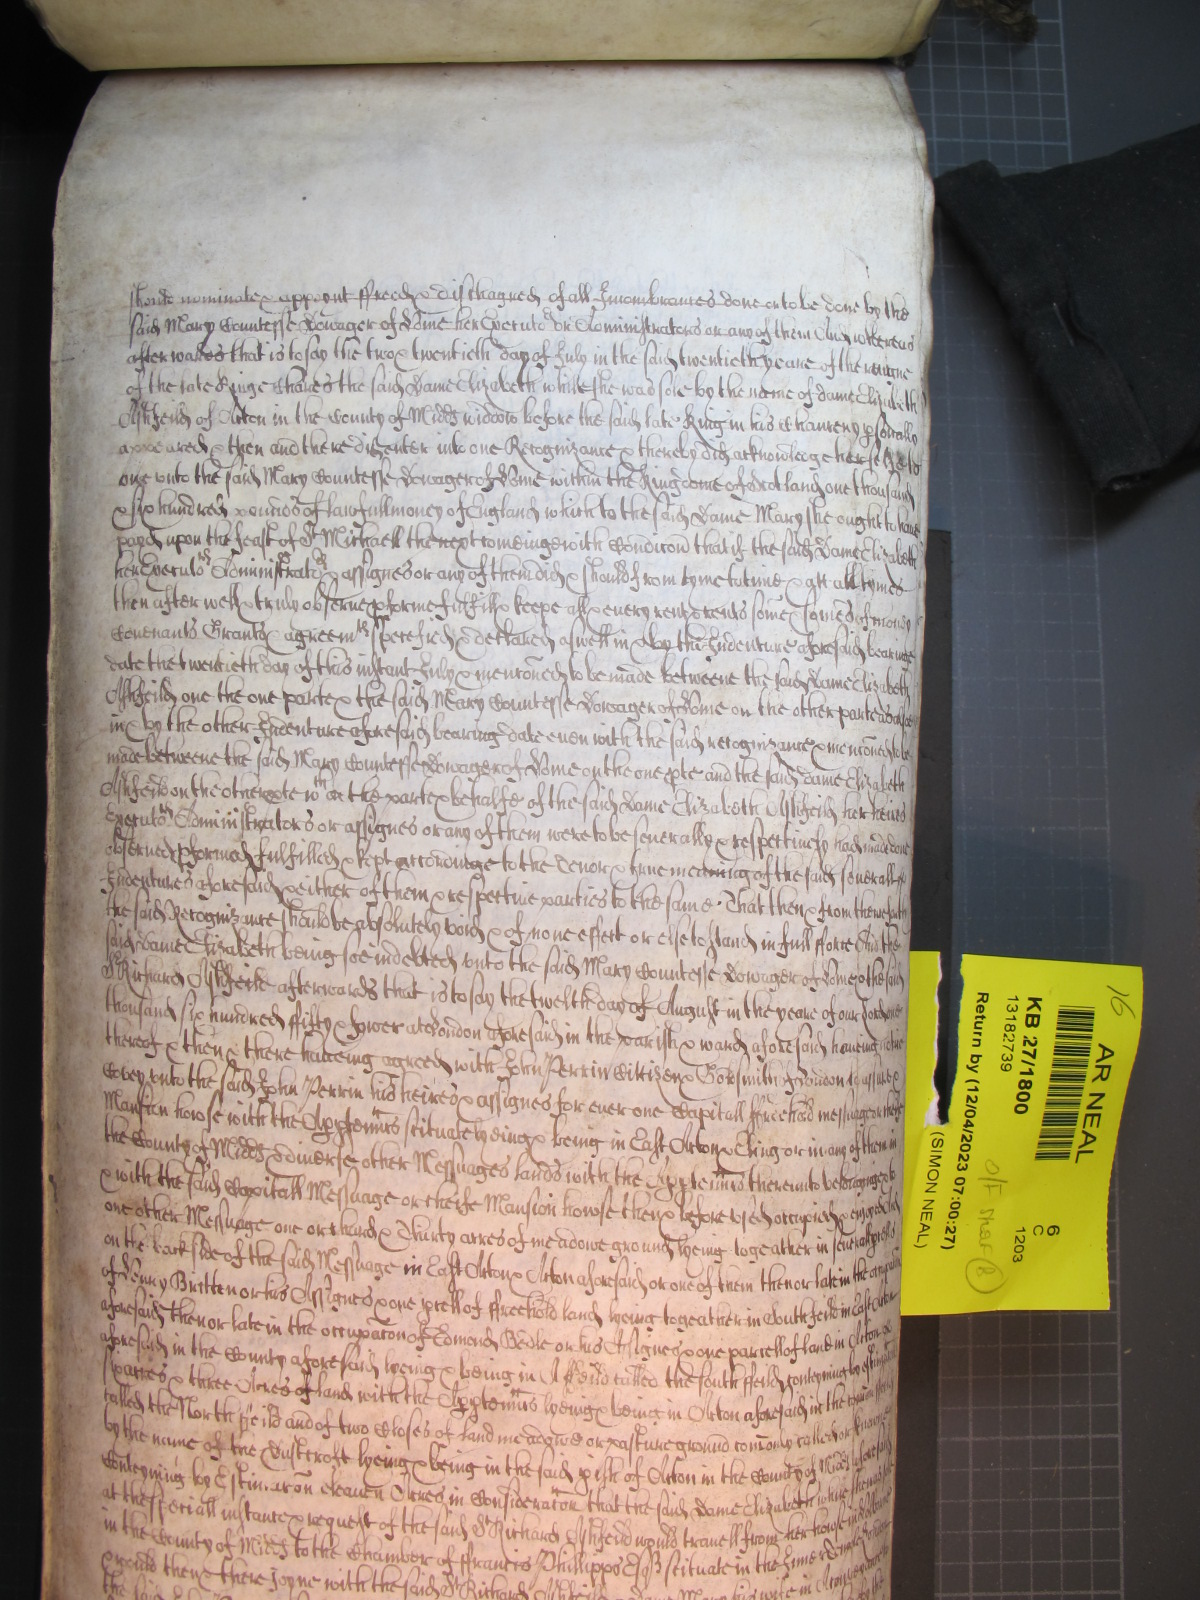 should nominate & appoynt ffreed & dischagned of all Incombrances done or to be done by the
said Mary Countesse Dowager of Home her Executors or Administrators or any of them And whereas
afterwards that is to say the two & twentieth day of July in the said twentieth yeare of the reigne
of the late Kinge Charles the said Dame Elizabeth while she was sole by the name of dame Elizabeth
Ashfeild of Acton in the County of Midds widdow before the said late King in his Chancery psonally
appeared & then and there did enter into one Recognizance & thereby did acknowledge herselfe to
owe unto the said Mary Countesse Dowager of Home within the Kingdome of Scotland one thousand
& six hundred pounds of lawfull money of England which to the said Dame Mary she ought to have
payd upon the feast of St Michaell then next comeinge with Condicon that if the said Dame Elizabeth
her Executors Administrators & assignes or any of them did & should from tyme to time & att all tymes
then after well & truly observe pforme fulfill & keepe all & every rent & rents some & somes of money
Covenants Grants & agreemts specefied & declared aswell in & by the Indenture aforesaid bearinge
date the twentieth day of this instant July & mencioned to be made betweene the said Dame Elizabeth
Ashfeild one the one parte & the said Mary Countesse Dowager of Home on the other parte as alsoe
in & by the other Indenture aforesaid bearing date even with the said recognizance & mencioned to be
made betweene the said Mary Countesse Dowager of Home on the one pte and the said dame Elizabeth
Ashfeild on the other pte wch on the parte & behalfe of the said Dame Elizabeth Ashfeild her heires
Executors Administrators or assignes or any of them were to be severally & respectively had made done
observed pformed fulfilled & kept accordinge to the Tenor & true meaning of the said severall
Indentures aforesaid & either of them & respective parties to the same. That then & from thenceforth
the said Recognizance should be absolutely void & of none effect or else to stand in full fforce And the
said Dame Elizabeth being soe indebted unto the said Mary Countesse Dowager of Home & the said
Sr Richard Ashfeild afterwards that is to say the twelth day of August in the yeare of our Lord one
thousand six hundred ffifty & fower att London aforesaid in the parish & ward aforesaid haveing notice
thereof & then & there haveing agreed with John Perrin Cittizen & Goldsmith of London to assure &
Convey unto the said John Perrin his heires & assignes for ever one Capitall ffreehold messuage or cheife
Mansion howse with the Apptenncs scituate lyeing & being in East Acton & Eling or in any of them in
the County of Midds & diverse other Messuages lands with the Apptenncs thereunto belonginge &
& with the said Capitall Messuage or cheife Mansion howse then & before used occupied & enjoyed And
one other Messuage one orchard & Thirty acres of meadowe ground lyeing togeather in severall pcells
on the backside of the said Messuage in East Acton & Acton aforesaid or one of them then or late in the occupacon
of Henry Britten or his Assignes & one pcell of ffreehold land lyeing togeather in Southfeild in East Acton
aforesaid then or late in the occupacon of Edmond Beale or his Assignes & one parcell of land in Acton
aforesaid in the County aforesaid lyeing & being in A ffeild called the South ffeild conteyning by estimacon
six acres & three Acres of land with the Apptenncs lyeing & being in Acton aforesaid in the comon
called the North ffeild and of two Closes of land meadowe or pasture ground comonly called or knowne
by the name of the lyeing & being in the said pish of Acton in the County of Midds aforesaid
Conteyning by Estimacon eleaven Acres in Consideracon that the said Dame Elizabeth
at the speciall instance & request of the said Sr Richard Ashfeild would travell from her howse in
in the County of Midds to the Chamber of ffrancis Phillipps Esqr scituate in the Inner Temple
& would then & there joyne with the said Sr Richard Ashfeild & dame Mary his wife in
AR NEAL
KB 27/1800
13182739
Return by (12/04/2023 07:00:27)
(SIMON NEAL)
6
C
1203
16